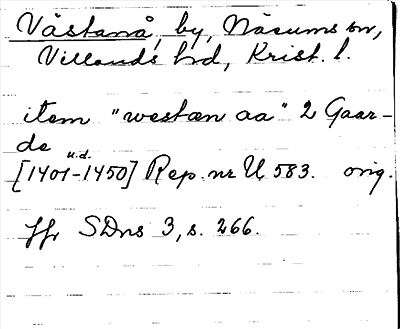 Västanå, by, Näsums sn,
Villands hd, Krist. l.
item "westen aa" 2 Gaar-
de
u.d.
[1401-1450] Rep. nr U 583. orig.
Jfr SDns 3, s. 266.